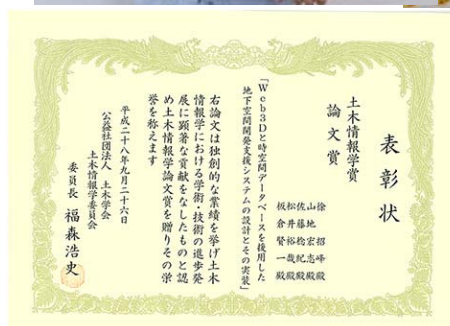 表彰状
土木情報学賞
論文賞
徐 招峰殿
山地 宏志殿
佐藤 稔紀殿
松井 裕哉殿
板倉 賢一殿
「Web3Dと時空間データベースを援用した
地下空間開発支援システムの設計とその実装」
右論文は独創的な業績を挙げ土木
情報学における学術・技術の進歩発
展に顕著な貢献をなしたものと認
め土木情報学論文賞を贈りその栄
誉を称えます
平成二十八年九月二十六日
公益社団法人 土木学会
土木情報学委員会
委員長 福森浩史